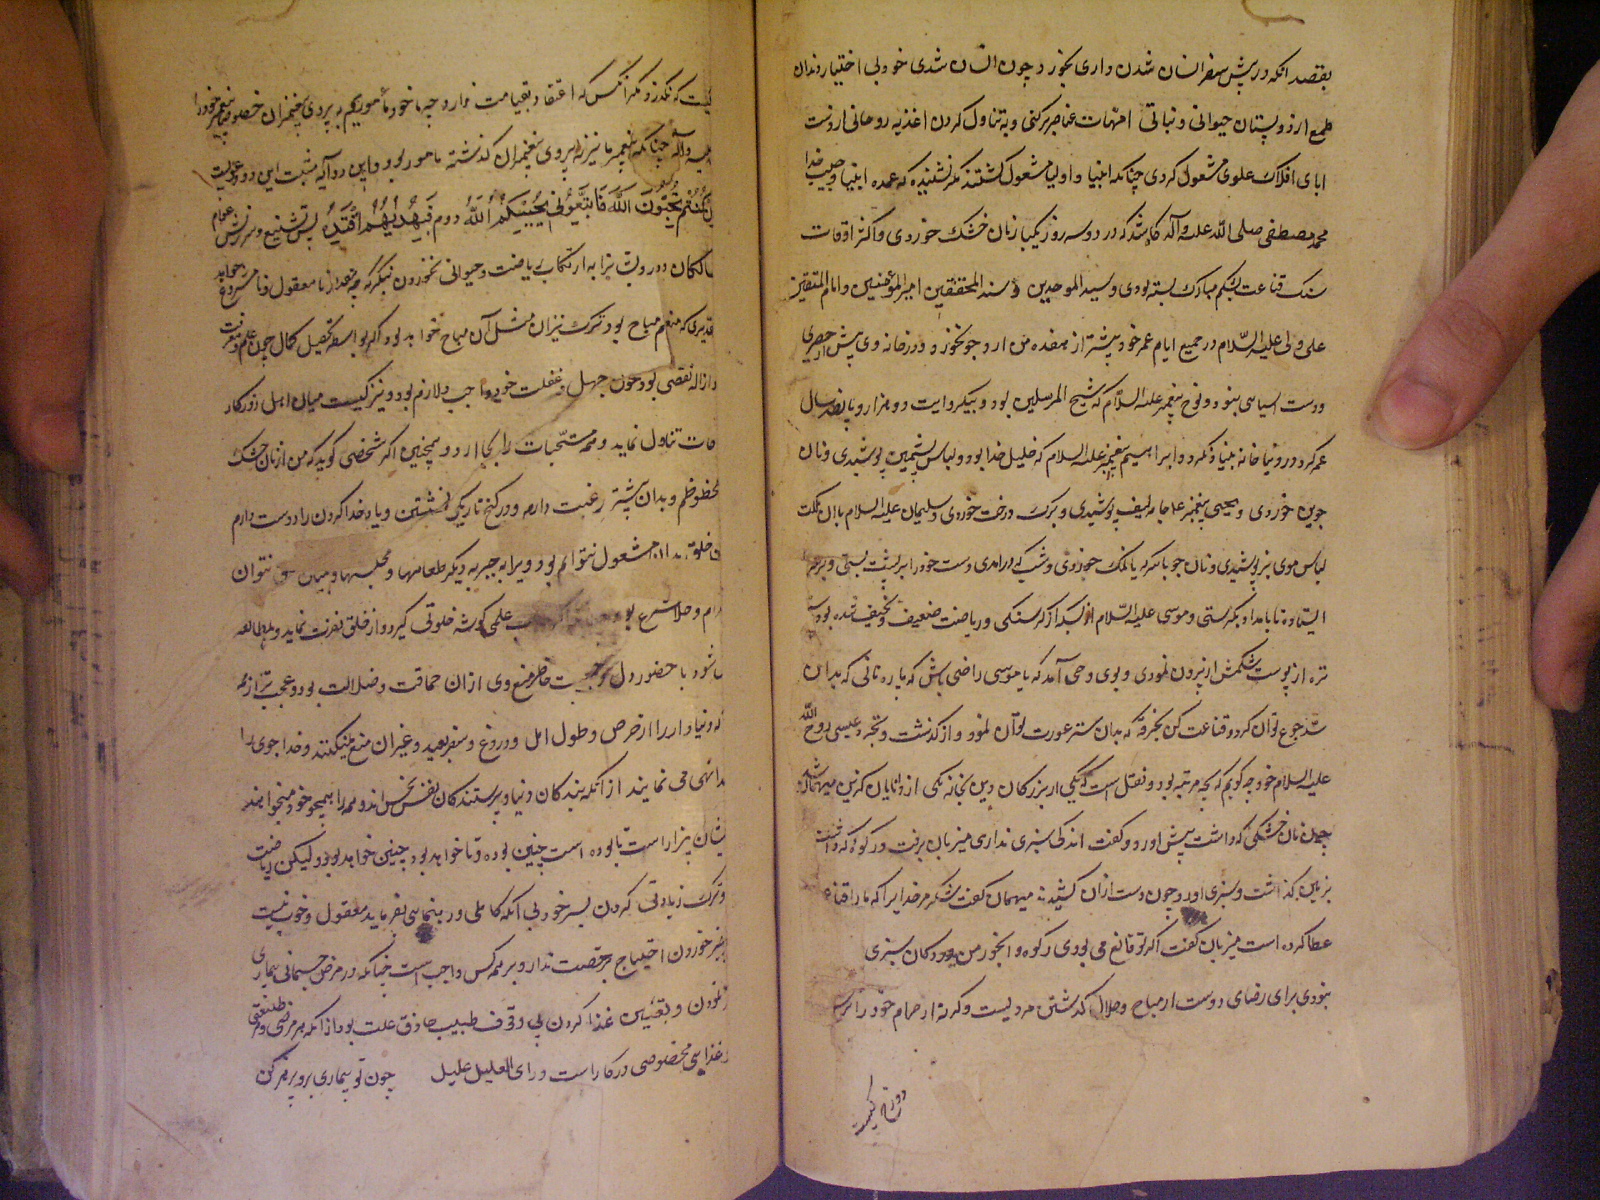 بقصد انکه در پیش سفر انسان شدن داری بخور و چون انسان شدی خود بی اختیار دندان
طمع از دو پستان حیوانی و نباتی امهات عناصر برکنی و به تناول کردن اغذیه روحانی از دست
ابای افلاک علوی مشغول کردی چنانکه انبیا و اولیا مشغول گشتند مگر نشنیده که عمده انبیا و حبیب خدا
محمد مصطفی صلی الله علیه وآله کاه شد که در دو سه روز یکبار نان خشک خوردی و اکثر اوقات
سنک قناعت بشکم مبارک بسته بودی و سید الموحدین و سند المحققین امیر المؤمنین و امام المتقین
علی ولی علیه السلام در جمیع ایام عمر خود بیشتر از هفده من ارد جو نخورد و در خانه وی بیش از حصیری
و دست اسیاسی نبود و نوح پیغمبر علیه السلام که شیخ المرسلین بود و بیکروایت دو هزار و پانصد سال
عمر کرد در دنیا خانه بنیاد نکرد و ابراهیم پیغمبر علیه السلام که خلیل خدا بود و لباس پشمین پوشیدی و نان
جوین خوردی و یحیی پیغمبر ع جامه لیف پوشیدی و برک درخت خوردی و سلیمان علیه السلام باان ملکت
لباس موی بز پوشیدی و نان جو با سرکه یا نمک خوردی و شب که درامدی دست خود را بر پشت بستی و بر سر
ایستاده تا بامداد بگرستی و موسی علیه السلام از بسکه از کرسنکی و ریاضت ضعیف و نحیف شده بود سبزی
تره از پوست شکمش از برون نمودی و بوی وحی آمد که یا موسی راضی باش که پاره نانی که بدان
سد جوع توان کرد و قناعت کن بخرقه که بدان ستر عورت توان نمود و از گذشت و تجرد عیسی روح الله
علیه السلام خود چه کویم که بچه مرتبه بود و نقل است که یکی از بزرکان دین بخانه یکی از دانایان کزین میهمان شد
چون نان خشکی که داشت پیش اورد و کفت اندکی سبزی نداری میزبان برفت و رکوه که داشت
بزمین گذاشت و سبزی اورد و چون دست ازان کشیدند میهمان کفت شکر مر خدایرا که ما را قناعت
عطا کرده است میزبان کفت اکر تو قانع می بودی رکوه و ابخور من در دکان سبزی
نبودی برای رضای دوست از مباح و حلال گذشتن مردیست و کرنه از حرام خود را
نیست که نکذرد مگر انکس که اعتقاد بقیامت ندارد چه ما خود مأموریم به پیروی پیغمبران خصوصا پیغمبر خود را
علیه وآله چنانکه پیغمبر ما نیز به پیروی پیغمبران کذشته مامور بود و این دو آیه مثبت این دو دعویست
إن كنتم تحبون الله فاتبعوني يحببكم الله دوم فبهديهم اقتده پس تشنیع و سرزنش عوام
سالکان و درویشانرا به ارتکاب ریاضت و حیوانی نخوردن نیکر که چه مقدار نا معقول و نا مشروع خواهد
که منعم مباح بود ترک نیز ان مثل آن مباح خواهد بود اگر بواسطه تحصیل کمال چون علم و معرفت
و ازاله نقصی بود چون جهل و غفلت خود واجب و لازم بود و نیز کیست میان اهل روزکار
تناول نماید و همه مستحبات را بجا ارد و همچنین اگر شخصی کوید که من از نان خشک
محظوظم و بدان بیشتر رغبت دارم و در کنج تاریکی نشستن و یاد خدا کردن را دوست دارم
خلق بدان مشغول نتوانم بود و یرا به جبر به دیگر طعامها و مجلسها و میان خلق نتوان
علمی کوشه خلوتی گیرد و از خلق نفرت نماید و بمطالعه
شود با حضور دل و جمعیت خاطر منع وی ازان حماقت و ضلالت بود و عجب تر از همه
که دنیا دار را از حرص و طول امل و دروغ و سفر بعید و غیر ان منع نمیکنند و خدا جوی را
نهی می نمایند از انکه بندکان دنیا و پرستندکان نفس نحس اند و همه را همچو خود میخواهند
بیزار است تا بوده است چنین بوده و تا خواهد بود چنین خواهد بود و لیکن ریاضت
و ترک زیادتی کردن بسر خود بی انکه کاملی و رهنمائی بفرماید معقول و خوب نیست
خوردن احتیاج برخصت ندارد و بر همه کس واجب است چنانکه در مرض جسمانی بیماری
نمودن و بتعیین غذا کردن بی وقوف طبیب حاذق علت بود از انکه هر مرضی و هر طبیعتی
غذایی مخصوصی در کار است و رای العلیل علیل چون تو بیماری برو پرهیز کن